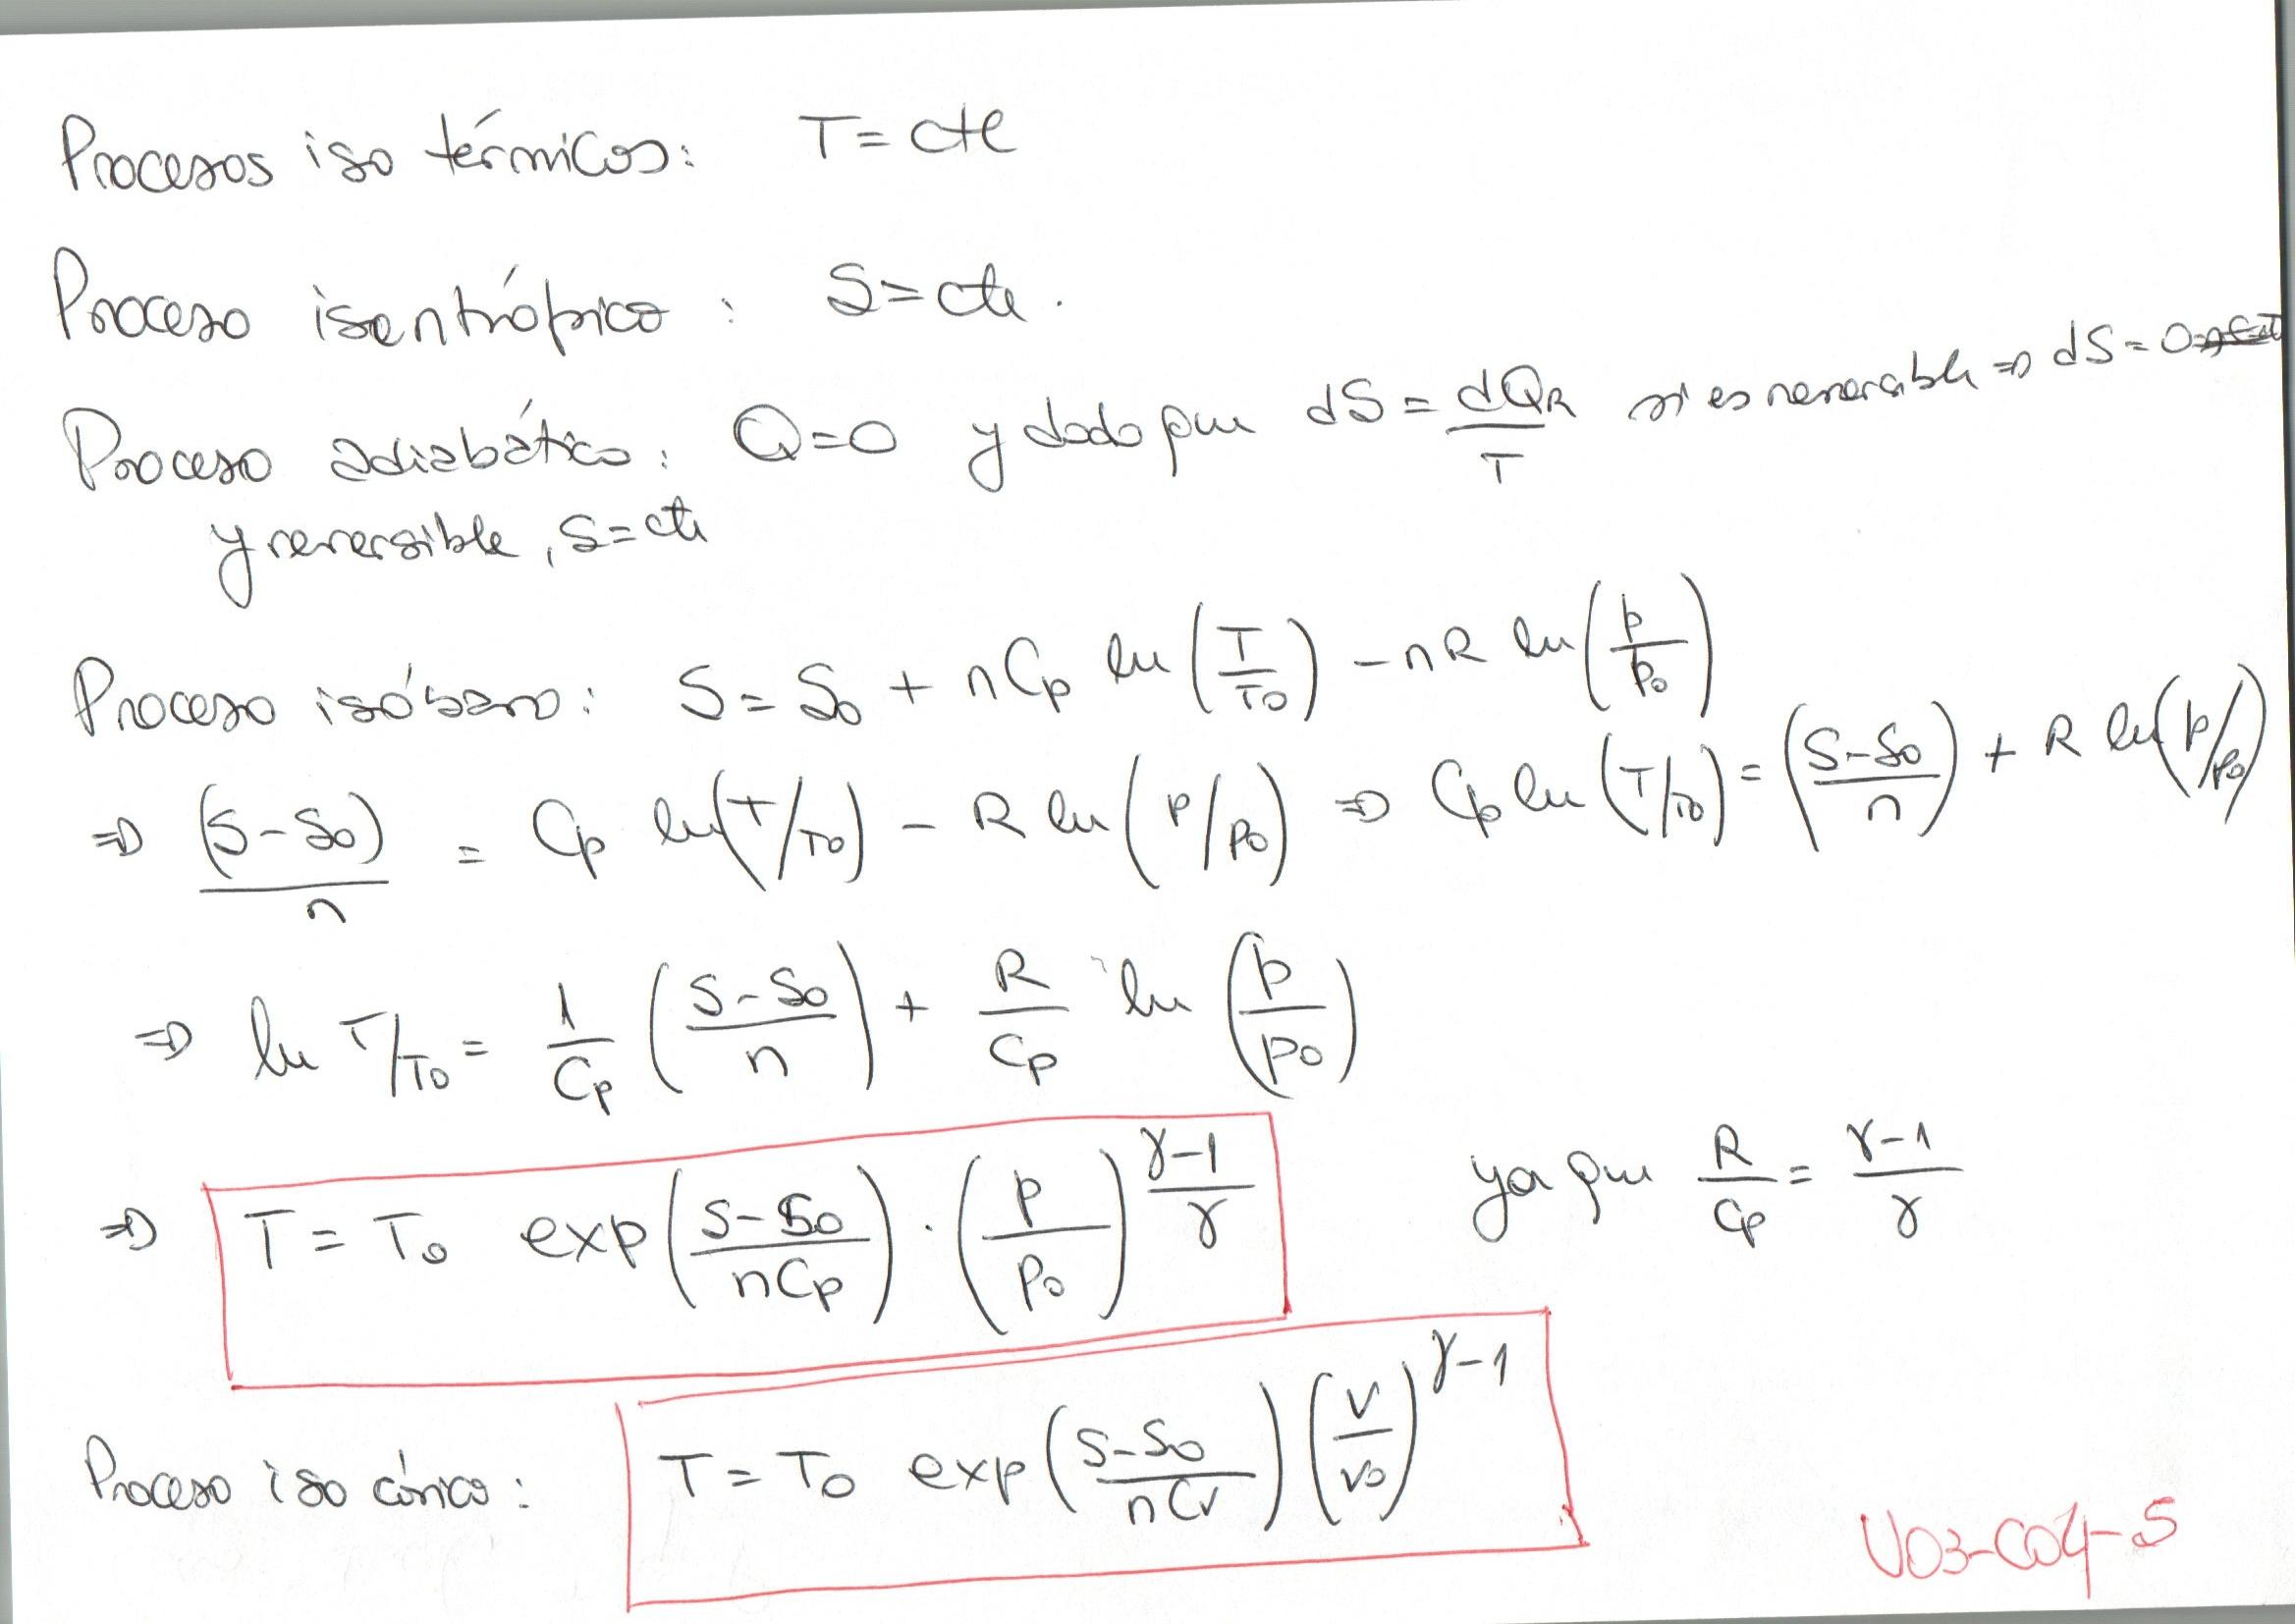 Procesos iso térmicos: T = cte
Proceso isentrópico : S = cte.
Proceso adiabático: Q=0 y dado que dS = dQR/T si es reversible ⇒ dS = 0
y reversible, S = cte
Proceso isóbaro: S = S0 + nCp ln(T/T0) - nR ln(p/p0)
⇒ (S-S0)/n = Cp ln(T/T0) - R ln(p/p0) ⇒ Cp ln(T/T0) = (S-S0/n) + R ln(p/p0)
⇒ ln T/T0 = 1/Cp (S-S0/n) + R/Cp ln(p/p0)
⇒ T = T0 exp(S-S0/nCp) · (p/p0)^γ-1/γ ya que R/Cp = γ-1/γ
Proceso iso córico : T = T0 exp(S-S0/nCv) (V/V0)^γ-1
U03-C04-5